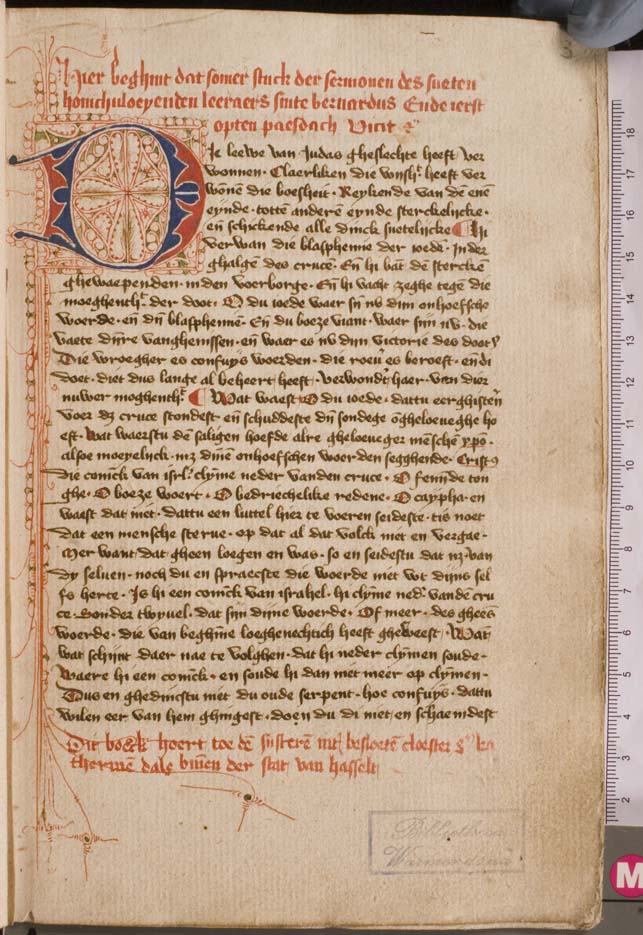 Hier beghint dat somer stuck der sermonen des sueten
honichuloeyenden leeraers sinte bernardus Ende ierst
opten paesdach Vicit
Die leewe van Judas gheslechte heeft ver
wonnen · Claerliken die wijsh̄t heeft ver
wōnē die boesheit · Reykende van dē enē
eynde · tottē anderē eynde sterckelijcke ·
eñ schickende alle dinck suetelijcke ¶ Hi
verwan die blasphemie der iodē · in der
ghalgē des cruce · Eñ hi bāt dē sterckē
ghewaependen · in den voerborge · Eñ hi vacht zeghe tegē die
moeghenth̄t der doot · O du iode waer sȳ nv dijn onhoefsche
woerde · eñ dijn blasphemiē · Eñ du boeze viant · waer sijn nv · die
vaete dijnre vanghenissen · eñ waer es nv dijn victorie des doots
Die wroegher es confuys woerden · die roeu̅ es beroeft · en di
doet · diet dus lange al beheert heeft · verwondert haer · van diēr
nuwer moghenth̄t ¶ Wat waest O du iode · dattu eerghistēn
voer dz cruce stondest · eñ schuddeste dijn sondege ōgheloeueghe ho
eft · Wat waerstu dē saligen hoefde alre gheloeueger mēschē xpō ·
alsoe moeyelijck · mz dinē onhoefschen woerden segghende · Crist9
die coninck van isrl̄ · clȳme neder vanden cruce · O fenijnde ton
ghe · O boeze woert · O bedriechelike redene · O cayphа · en
waest dat niet · dattu een luttel hier te voeren seideste · tis noet
dat een mensche sterue · op dat al dat volck niet en vergae ·
Mer want dat gheen loegen en was · so en seidestu dat nz van
dy seluen · noch du en spraecste die woerde niet wt dijns sel
fs herte · Is hi een coninck van israhel · hi clȳme ned̄ vandē cru
ce · Sonder twyuel · dat sijn dijne woerde · Of meer · des gheēs
woerde · die van beghīne loeghenechtich heeft gheweest · Wat
wat schijnt daer nae te volghen · dat hi neder clȳmen soude ·
Waere hi een coninck · en soude hi dan niet meer op clȳmen ·
Dus en ghedincstu niet du oude serpent · hoe confuys · dattu
wilen eer van hem ghingest · doen du di niet en schaemdest
Dit boeck hoert toe dē susterē int besloetē cloester s̄ ka
therinē dale binēn der stat van hasselt
Bibliotheca
Warmondana